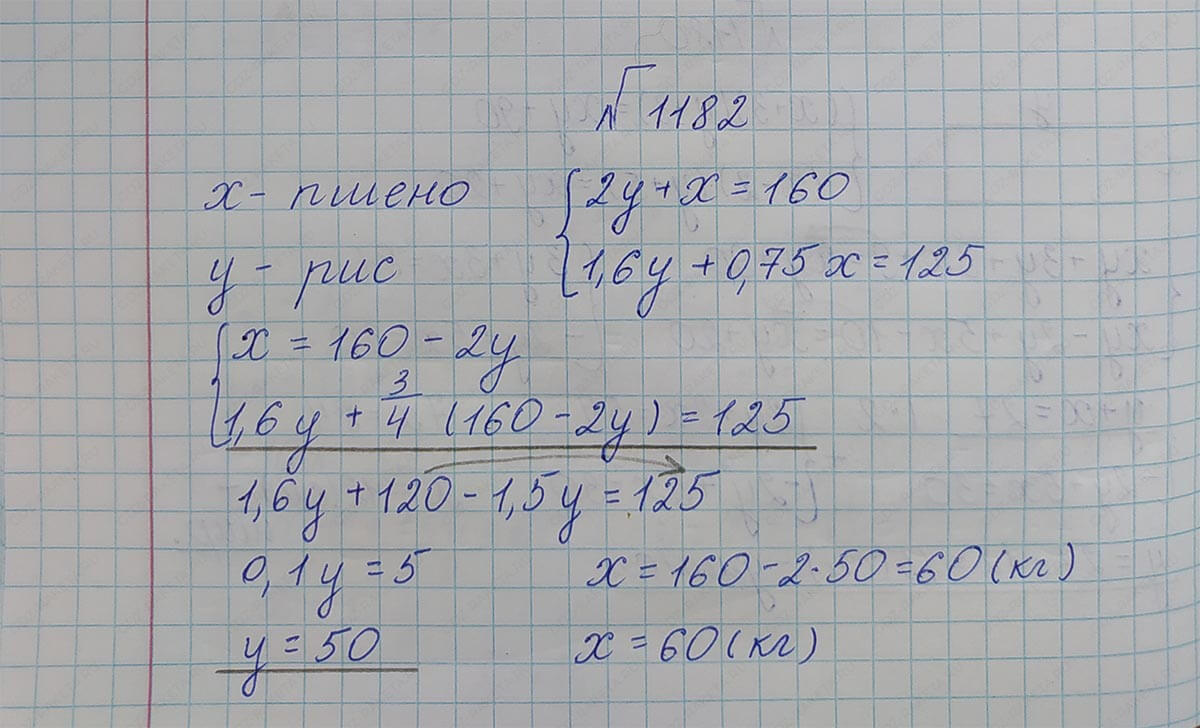 № 1182
x - пшено
y - рис
{2y + x = 160
1,6y + 0,75x = 125
{x = 160 - 2y
1,6y + 3/4 (160 - 2y) = 125
1,6y + 120 - 1,5y = 125
0,1y = 5
y = 50
x = 160 - 2·50 = 60 (кг)
x = 60 (кг)